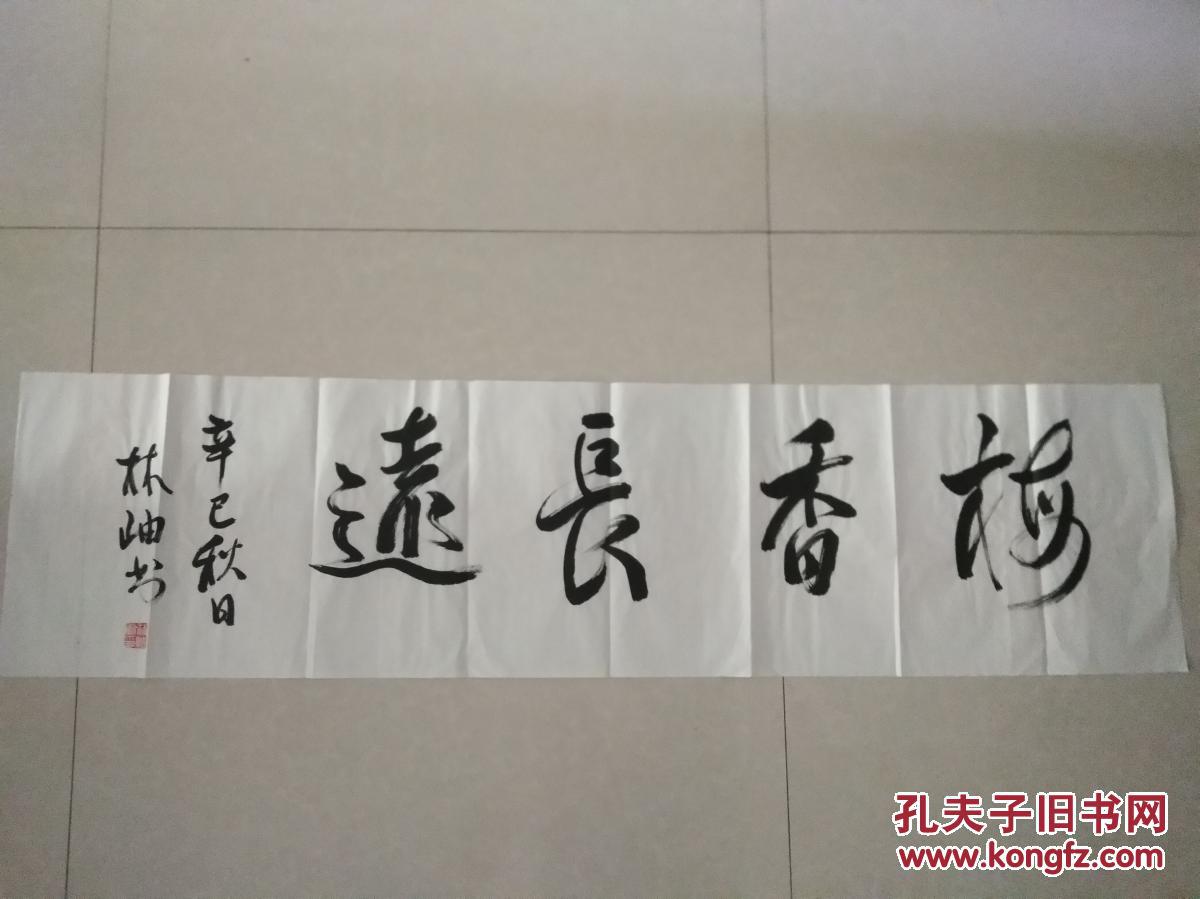 梅香長遠
辛巳秋日
林岫书
孔夫子旧书网
www.kongfz.com